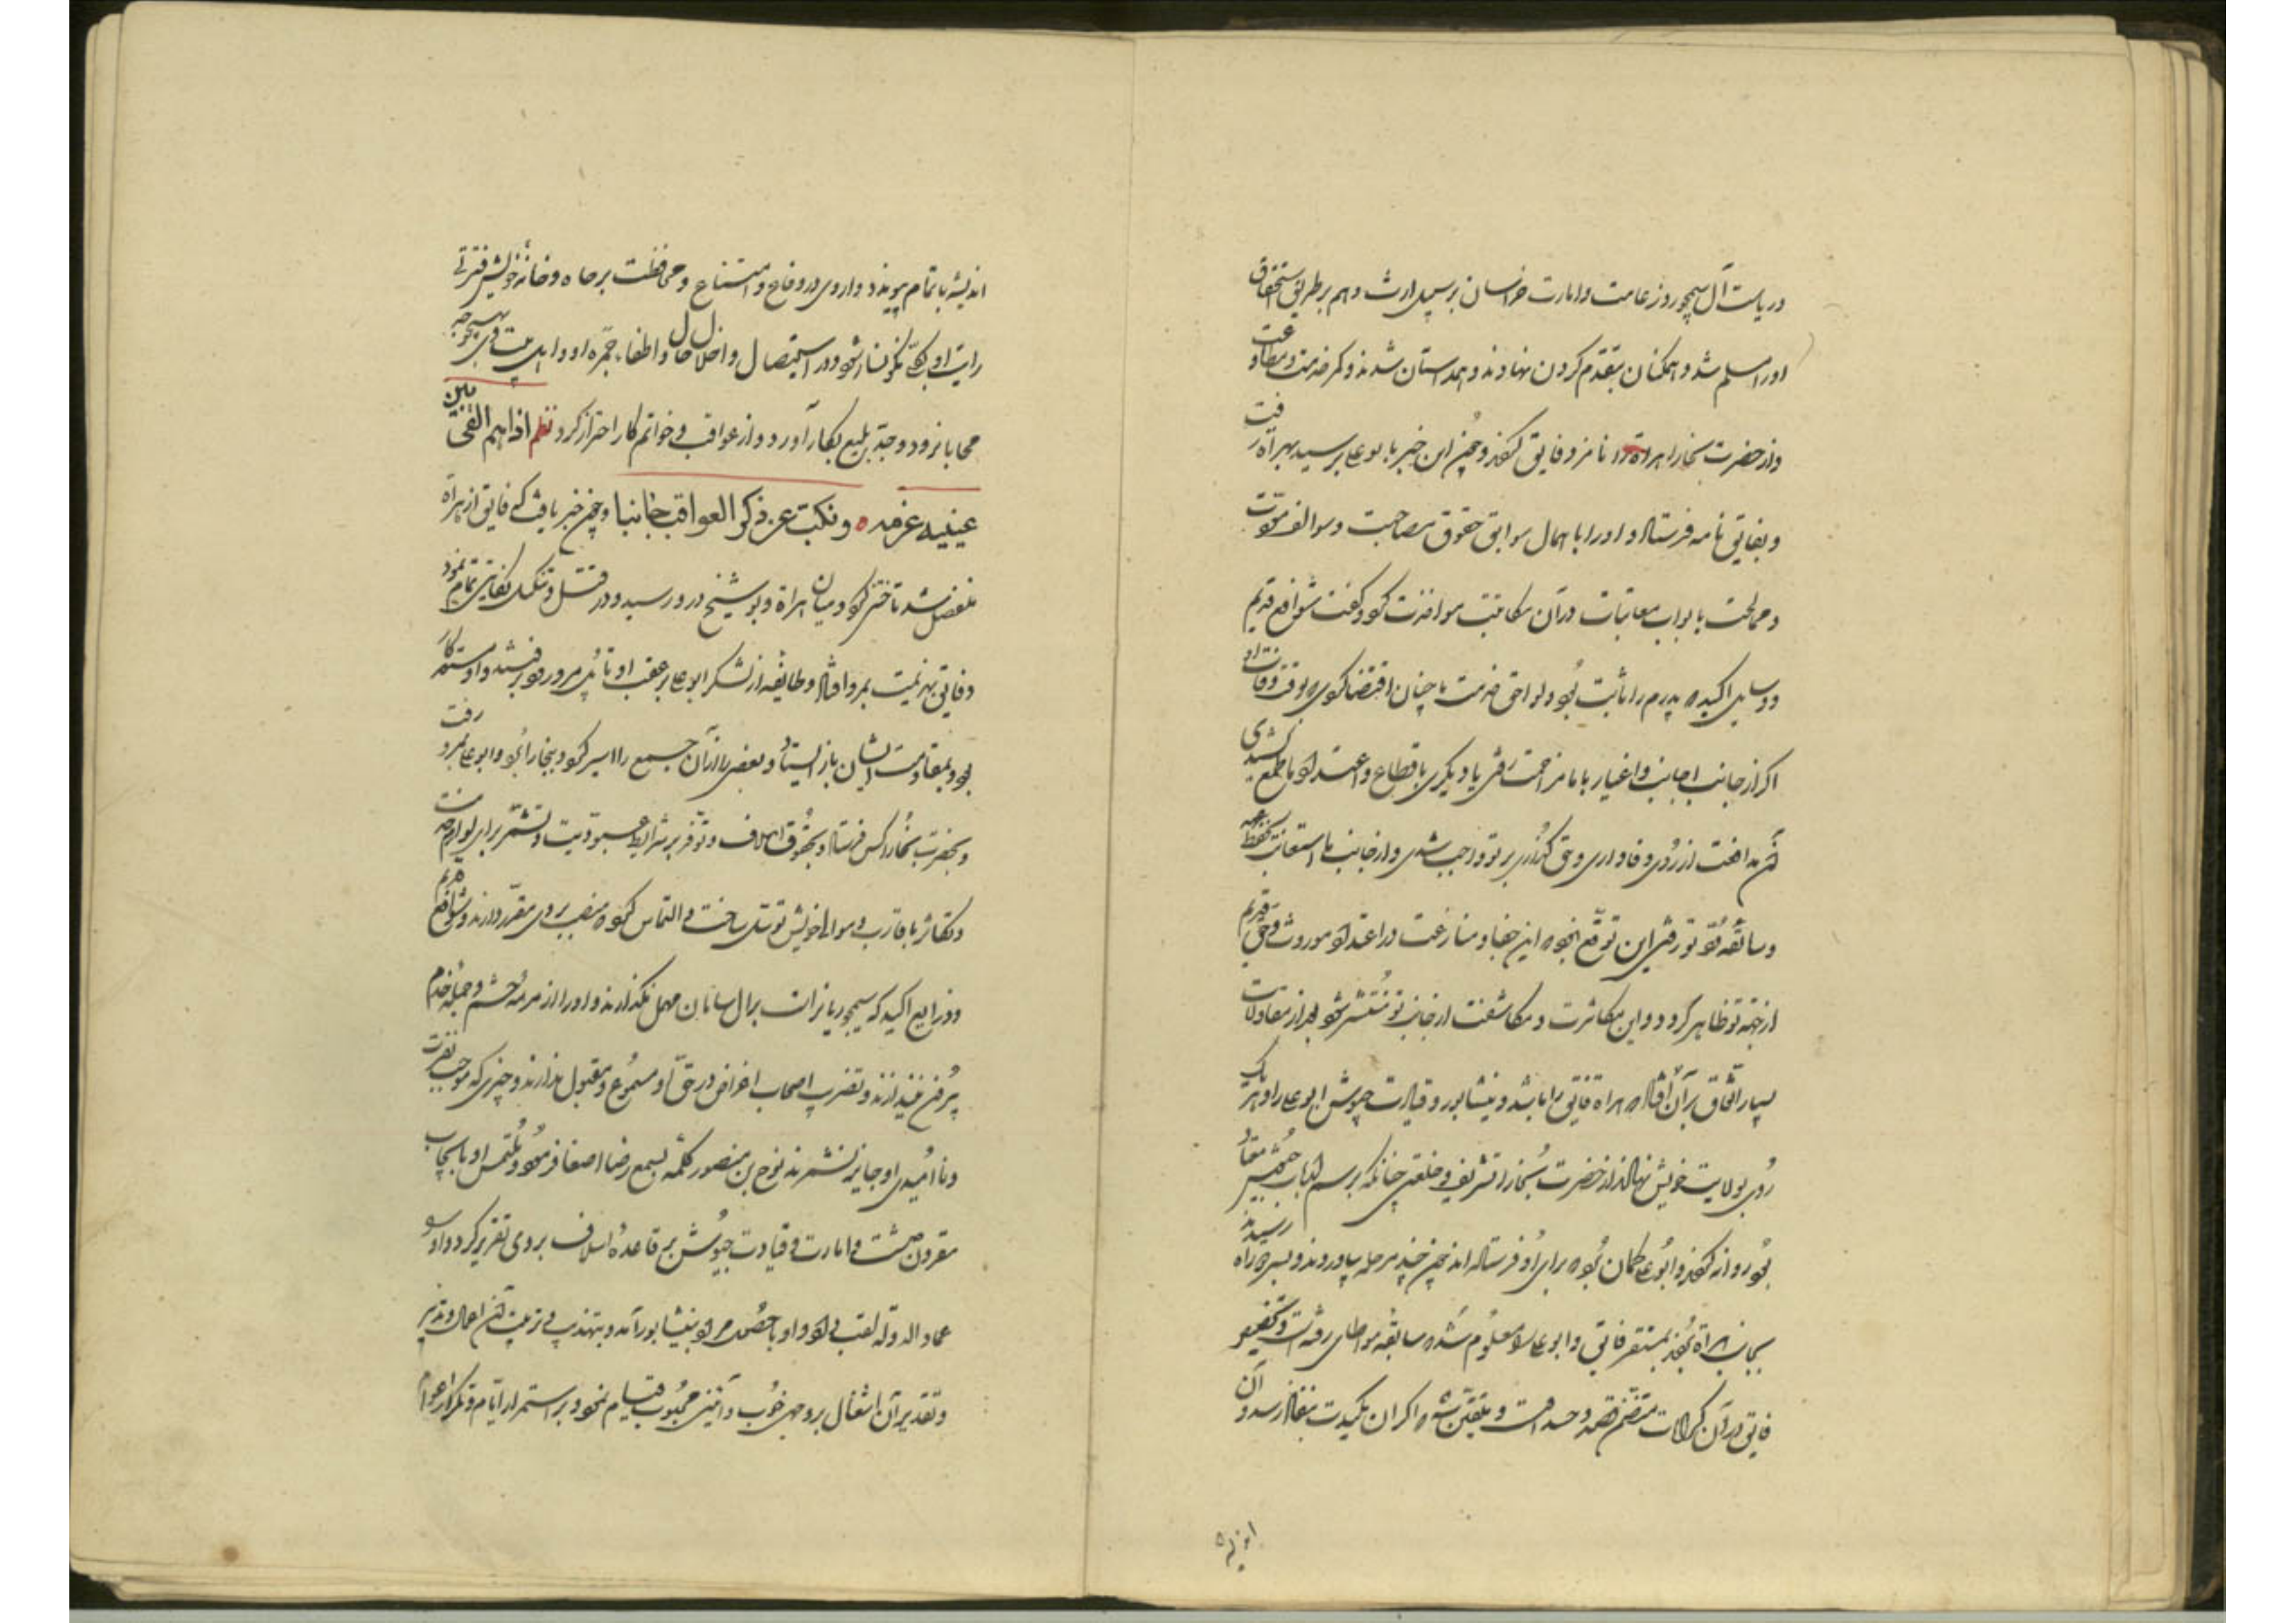 و ریاست آل سیمجور و زعامت و امارت خراسان بر سبیل ارث و هم بر طریق استحقاق
او را مسلم شد و همکنان بتقدم او گردن نهادند و همداستان شدند و کمر خدمت و مطاوعت
و از حضرت بخارا هراة را نامزد فایق کردند و چون این خبر بابوعلی رسید بهراة رفت
و بفایق نامه فرستاد و او را باهمال سوابق حقوق مصاحبت و سوالف محرمت
و ممالحت بابواب معاتبات در آن مکاتبت موافزت کرد و گفت شوافع قدیم
و وسایل اکیده پدرم را ثابت بود و لواحق خدمت ما چنان اقتضا کردی که بوقت وفات او
اگر از جانب اجانب و اغیار با ما مزاحمت رفتی یا دیگری باقطاع و اعتداد ما طمع کشیدی
آن مدافعت از روی وفاداری و حق گزاری بر تو واجب شدی و از جانب ما استعانت بحفظ عهد
و سابقه تو رفتی این توقع نبود که این جفا و منازعت در اعتداد موروث و حق قدیم
از جهة تو ظاهر گردد و این مکاثرت و مکاشفت از جانب تو منتشر شود بعد از مقاولات
بسیار اتفاق بر آن افتاد که هراة فایق را باشد و نیشابور و قیادت جیوش ابوعلی را و هر یک
روی بولایت خویش نهاد و از حضرت بخارا تشریف و خلعتی چنانکه برسم ارباب جیوش معتاد
بود روانه کردند و ابوعلی را گمان بود که برای او فرستاده اند چون چند مرحله بیاوردند و بسر راه رسیدند
بجانب هراة بردند بمستقر فایق و ابوعلی را معلوم شد که سابقه مواطای رفته است و تحقیق
فایق در آن کرامات متضمن قصد و حسد اوست و متیقن شد که اگر آن مکیدت بنفاذ رسد و آن
اندیشه
اندیشه باتمام پیوندد و او در دفاع و امتناع و محافظت بر جاه و خانه خویش فترتی
رایت او بکلی نگونسار شود و در استیصال و اخلال حال و اطفاء جمره او و اهل بیت وی بهیچوجه
محابا نرود و جد بلیغ بکار آورد و از عواقب و خواتم کار احتراز کرد نظم اذا هم القی بین
عینیه عزمه ٥ و نکب عن ذکر العواقب جانبا و چون خبر یافت که فایق از هراة
منفصل شد تاختن کرد و میان هراة و بوشنج درو رسید و در قتل و تنکیل بغایتی تمام نمود
و فایق بهزیمت بمرو افتاد و طایفه از لشکر ابوعلی بر عقب او تا پل مرورود برفتند و او مستعد کار
بود بمقاومت ایشان باز ایستاد و بعضی را از آن جمع را اسیر کرد و ببخارا برد و ابوعلی بمرو رفت
و بحضرت بخارا کس فرستاد و بحقوق اسلاف و توفر بر شرایط عبودیت و تشمر برای لوازم خدمت
و تکاثر باقارب و موالی خویش توسل ساخت و التماس کرد که منصب پدر بروی مقرر دارند و شوافع قدیم
و ذرایع اکید که سیمجوریانرا بر آل سامان مهمل نگذارند و او را از زمره حشم و جمله خدم
بیرون نیندازند و تضریب اصحاب اغراض در حق او مسموع و مقبول ندارند و چیزی که موجب نفرت
و نا امیدی او جایز نشمرند نوح بن منصور کلمه بسمع رضا اصغا فرمود و ملتمس او بایجاب
مقرون داشت و امارت و قیادت جیوش بر قاعده اسلاف بروی تقریر کرد و او را
عماد الدوله لقب داد و او با حصول مراد بنیشابور آمد و بتهذیب و ترتیب آن اعمال و تدبیر
و تقدیر آن اشغال بر وجهی خوب و آئینی محبوب قیام نمود و بر استمرار ایام و تکرار اعوام